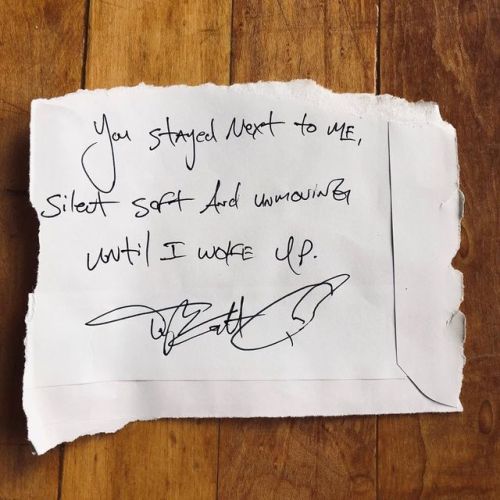 You stayed Next to ME,
Silent soft And unmoving
until I woke up.